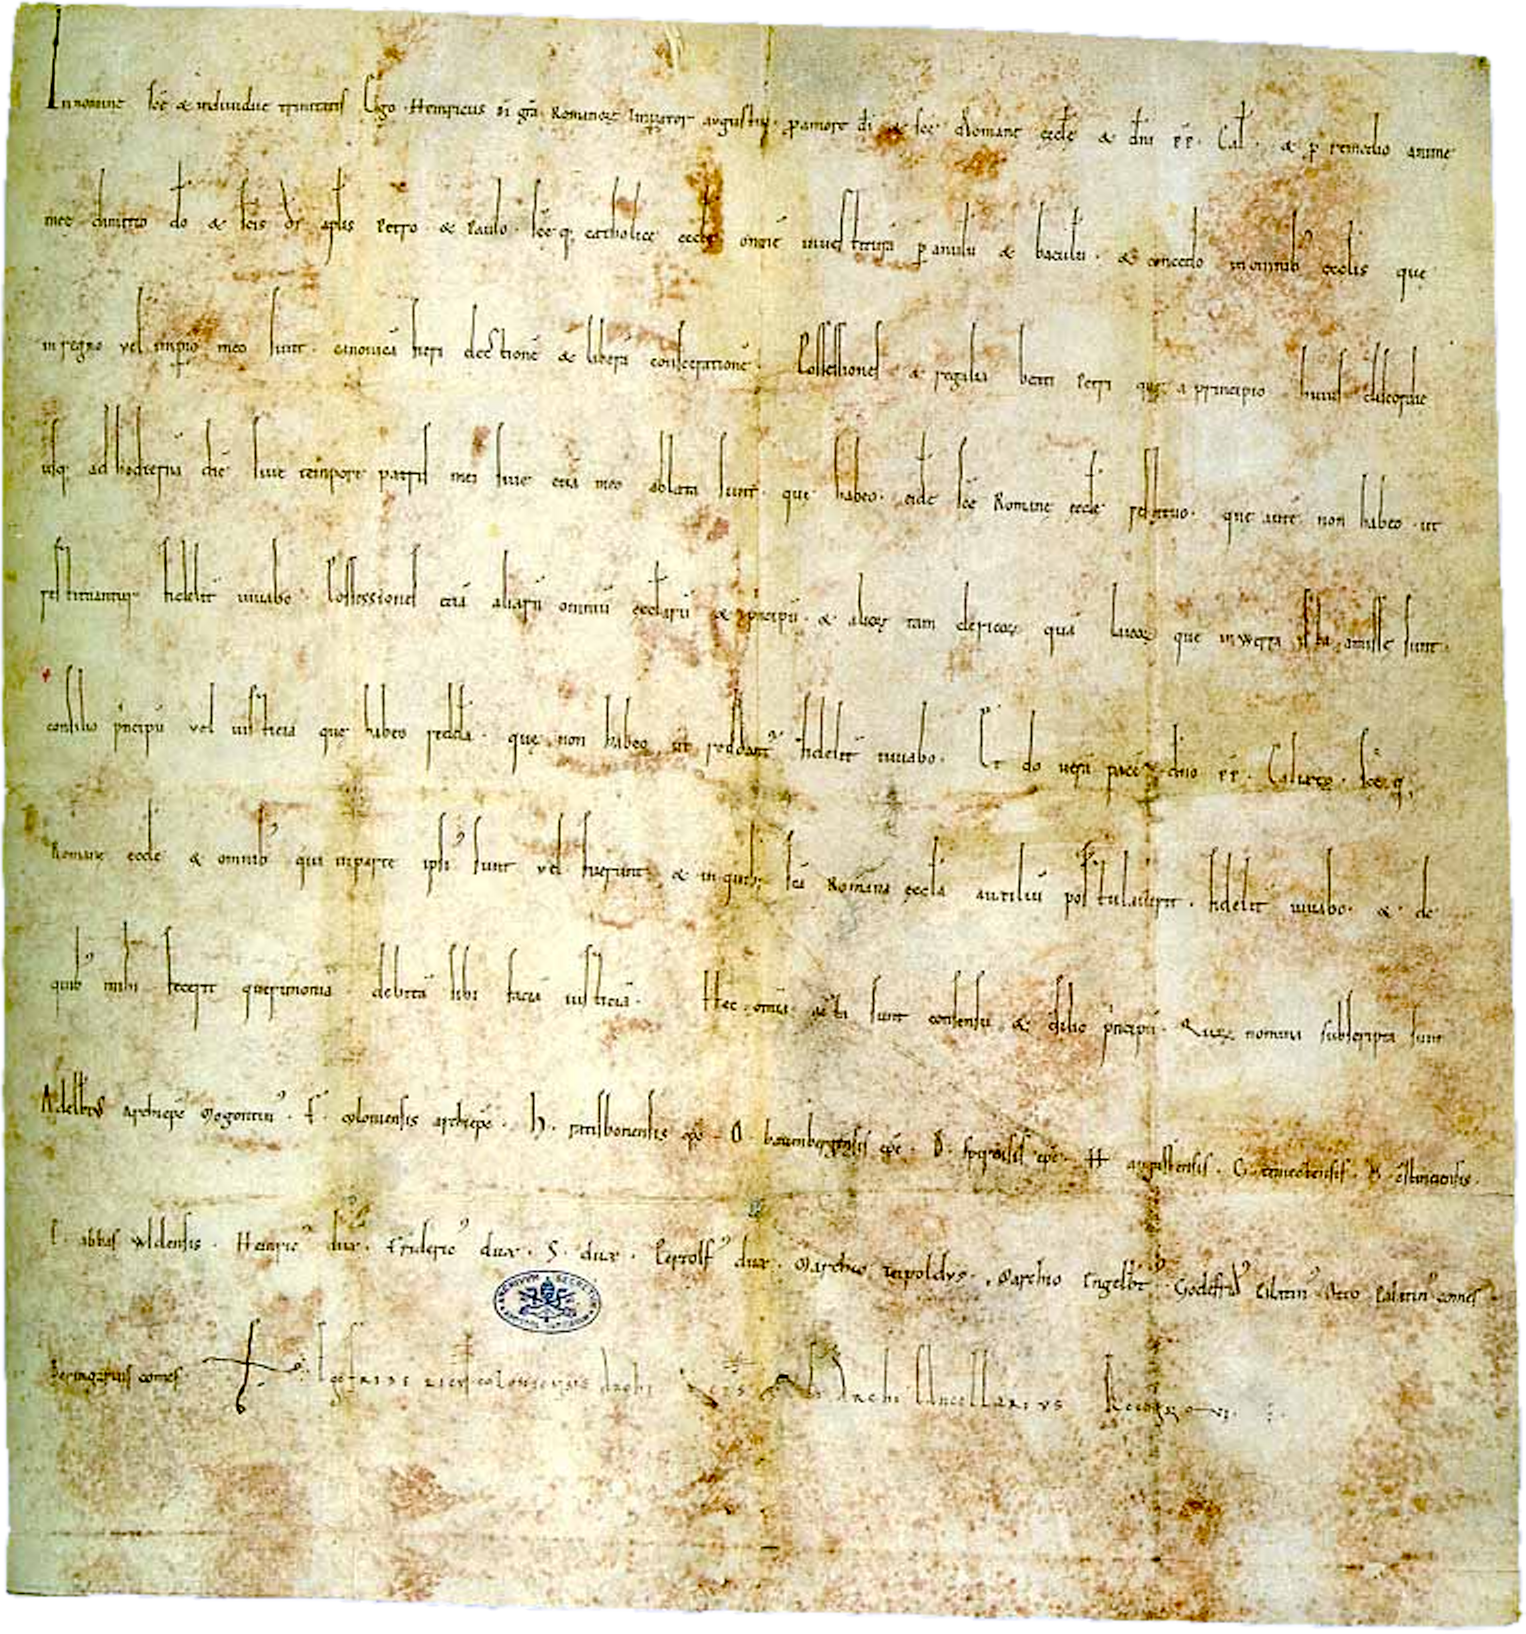 In nomine sc̄ę & individuę trinitatis Ego Heinricus dī grā Romanoꝝ Imꝑator augustus ꝓ amore dī & sc̄ę Romanę ęcclę & dn̄i pp Cał & ꝑ remedio animę
meę dimitto dō & sc̄is dī apłis Petro & Paulo sc̄ęq; catholicę ęcclę om̄ē investiturā ꝑ anulū & baculū & concedo in omnibꝰ ęcclīs que
in regno vel imꝑio meo sunt canonicā fieri electionē & liberā consecrationē Possessiones & regalia beati Petri quę a principio huius discordię
usq; ad hodiernā diē sive tempore patris mei sive etiā meo ablata sunt quę habeo eidē sc̄ę Romanę ęcclę restituo quę autē non habeo ut
restituantur fidelit̄ iuvabo Possessiones etiā aliarū omniū ęccłarū & pncipū & alioꝝ tam clericoꝝ quā laicoꝝ quę in werra ista amissę sunt
consilio pncipū vel iusticia quę habeo reddā quę non habeo ut reddant᷑ fidelit̄ iuvabo Et do verā pacē dn̄o pp Calixto sc̄ęq;
Romanę ęcclę & omnibꝰ qui in parte ipsiꝰ sunt vel fuerunt & in quibꝰ sc̄a Romana ęccła auxiliū postulaverit fidelit̄ iuvabo & de
quibꝰ mihi fecerit querimoniā debitā sibi faciā iusticiā Hec om̄ia acta sunt consensu & c̄silio pncipū Quoꝝ nomina subscripta sunt
Adelbtus archiepc̄ Mogontinꝰ F coloniensis archiepc̄ H ratisbonensis epc̄ O bauenbergensis epc̄ B spirensis epc̄ H augustensis G traiectensis Ǒ c̄stanciensis
E abbas wldensis Heinricꝰ dux Fridericꝰ dux S dux Pertolfꝰ dux Marchio teipoldus Marchio Engelbt Godefridꝰ Palatinꝰ Otto Palatinꝰ comes
Beringarius comes Fridericus coloniensis archiepc̄s & Archicancellarius Recognovi
ARCHIVVM SECRETVM